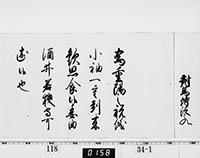 對馬侍従
為重陽之祝儀
小袖一重到来
歓思食候委曲
酒井若狭守可
述候也
118
0158
34-1